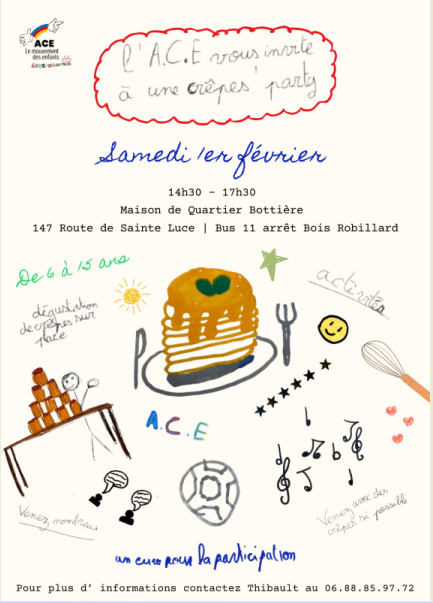 ACE
Le mouvement
des enfants
l'A.C.E vous invite
à une crêpes' party
Samedi 1er février
14h30 - 17h30
Maison de Quartier Bottière
147 Route de Sainte Luce | Bus 11 arrêt Bois Robillard
De 6 à 15 ans
activités
dégustation
de crêpes sur
place
A.C.E
Venez nombreux
Venez avec des
crêpes si possible
un euro pour la participation
Pour plus d' informations contactez Thibault au 06.88.85.97.72